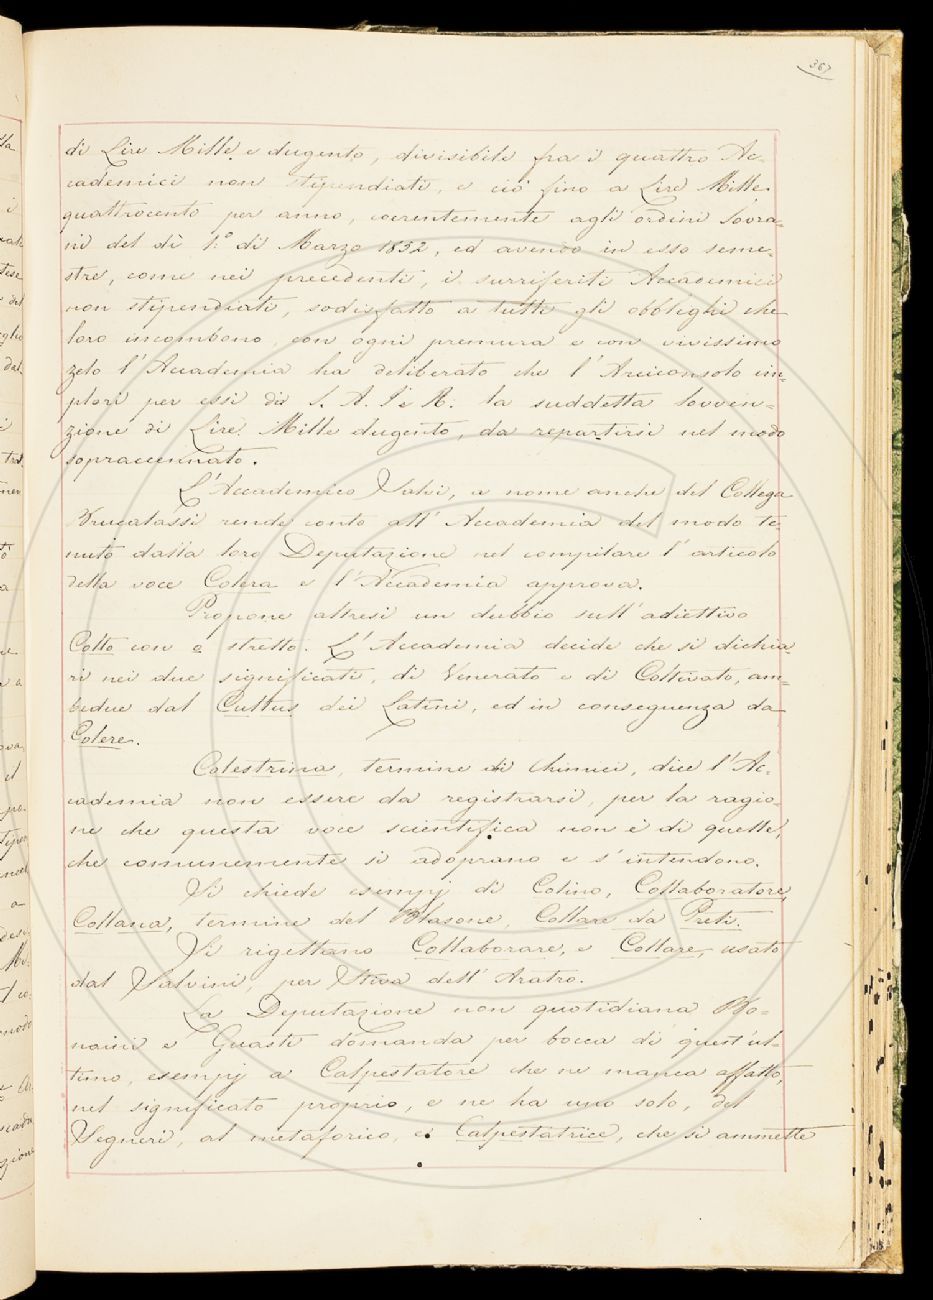 367
di Lire Mille e dugento, divisibile fra i quattro Ac-
cademici non stipendiati, e ciò fino a Lire Mille
quattrocento per anno, coerentemente agli ordini Sovra-
ni del dì 1.º di Marzo 1852, ed avendo in esso seme-
stre, come nei precedenti, i surriferiti Accademici
non stipendiati, sodisfatto a tutti gli obblighi che
loro incombono, con ogni premura e con vivissimo
zelo l'Accademia ha deliberato che l'Arciconsolo im-
plori per essi da S. A. I. e R. la suddetta Sovven-
zione di Lire Mille dugento, da repartirsi nel modo
sopraccennato.
L'Accademico Salvi, a nome anche del Collega
Brucalassi rende conto all'Accademia del modo te-
nuto dalla loro Deputazione nel compilare l'articolo
della voce Colera e l'Accademia approva.
Propone altresì un dubbio sull'adiettivo
Colto con o stretto. L'Accademia decide che si dichia-
ri nei due significati, di Venerato e di Coltivato, am-
bedue dal Cultus dei Latini, ed in conseguenza da
Colere.
Colestrina, termine di Chimici, dice l'Ac-
cademia non essere da registrarsi, per la ragio-
ne che questa voce scientifica non è di quelle,
che comunemente si adoprano e s'intendono.
Si chiede esempj di Colino, Collaboratore,
Collana, termine del Blasone, Collare da Preti.
Si rigettano Collaborare, e Collare, usato
dal Salvini, per Stiva dell'Aratro.
La Deputazione non quotidiana Bo-
naini e Guasti domanda per bocca di quest'ul-
timo, esempj a Calpestatore che ne manca affatto,
nel significato proprio, e ne ha uno solo, del
Segneri, al metaforico, e Calpestatrice, che si ammette